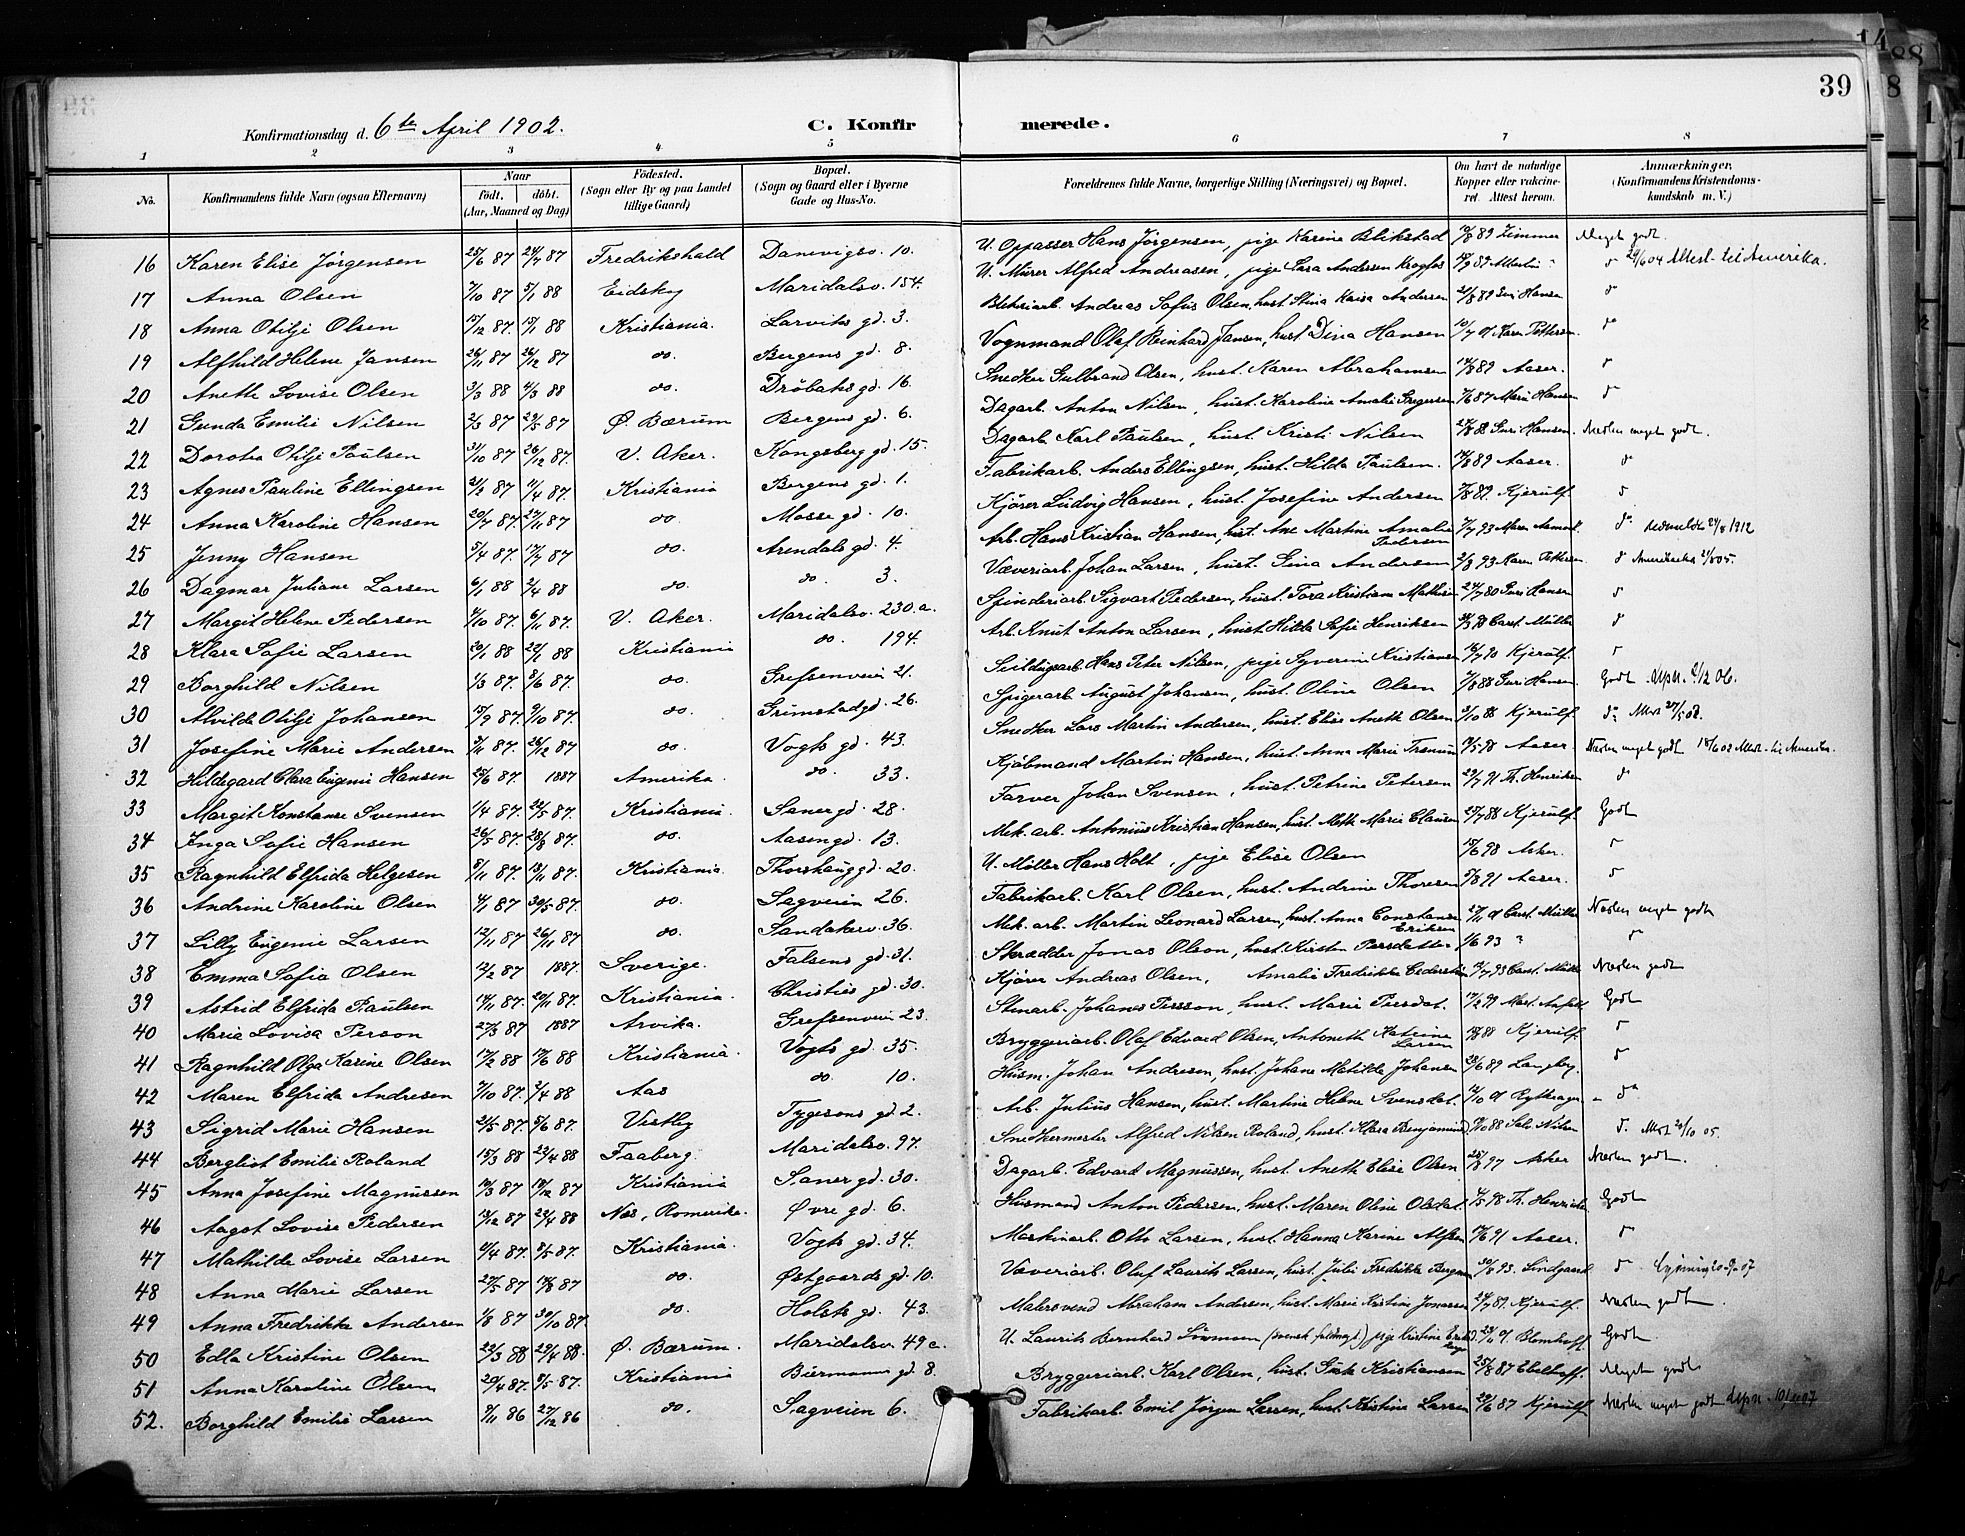 39
Konfirmationsdag d. 6te April 1902.
C. Konfirmerede.
1 2 3 4 5 6 7 8
No. Konfirmandens fulde Navn (ogsaa Efternavn) Naar født, døbt. (Aar, Maaned og Dag) Fødested. (Sogn eller By og paa Landet tillige Gaard) Bopæl. (Sogn og Gaard eller i Byerne Gade og Hus-No. Forældrenes fulde Navne, borgerlige Stilling (Næringsvei) og Bopæl. Om havt de naturlige Kopper eller vakcineret. Attest herom. Anmærkninger. (Konfirmandens Kristendomskundskab m. V.)
16 Karen Elise Jörgensen 25/6 87 24/7 87 Fredrikshald Danevigsv. 10. U. Oppasser Hans Jörgensen, pige Karine Blikstad Zimmer Meget godt.
17 Anna Olsen 7/10 87 5/1 88 Eidskog Maridalsv. 154. U. Murer Alfred Andreasen, pige Lara Andersen 29/6 04 Attest til Amerika.
18 Anna Otilje Olsen 15/12 87. 15/1 88 Kristiania. Larviks gd. 3. Andreas Sofus Olsen, hust. Stina Kaisa Andersen Guri Hansen
19 Alfhild Helene Jansen 26/11 87 26/12 87 do. Bergens gd. 8. Vognmand Olaf Reinhard Jansen, hust. Dina Hansen Karen Pettersen
20 Anette Lovise Olsen 3/3 88 4/3 88 do. Dröbaks gd. 16. Snedker Gulbrand Olsen, hust. Karen Abrahamsen Aaser.
21 Gunda Emilie Nilsen 2/3 87 29/5 87 Ø. Bærum Bergens gd. 6. Dagarb. Anton Nilsen, hust. Karoline Amalie Gregersen Marie Hansen
22 Dorthea Otilje Paulsen 31/10 87 26/12 87. V. Aker. Kongsberg gd. 15. Dagarb. Karl Paulsen, hust. Kristi Nilsen Guri Hansen. Næsten meget godt.
23 Agnes Pauline Ellingsen 21/2 87 11/4 87. Kristiania Bergens gd. 1. Fabrikarb. Anders Ellingsen, hust. Hilda Paulsen. Aaser.
24 Anna Karoline Hansen 20/7 87. 27/11 87 do. Mosse gd. 10. Kjörer Ludvig Hansen, hust. Josefine Andersen Kjerulf.
25 Jenny Hansen 5/4 87. 17/7 87 do. Arendals gd. 4. Arb. Hans Kristian Hansen, hust. Ane Martine Amalie Pedersen
26 Dagmar Juliane Larsen 6/1 88 2/4 88 do. do. 3. Væveriarb. Johan Larsen, hust. Gina Andersen Karen Pettersen
27 Margit Helene Pedersen 4/10 87. 6/11 87. V. Aker. Maridalsv. 230.a. Spinderiarb. Sigvart Pedersen, hust. Tora Kristiane Mathisen Guri Hansen
28 Klara Sofie Larsen 20/1 88 22/1 88 Kristiania do. 194. Arb. Knut Anton Larsen, hust. Hilda Sofie Henriksen Carst. Müller
29 Borghild Nilsen 1/3 87. 8/6 87. do. Grefsenveien 21. Hans Peter Nilsen, pige Syverine Kristiansen Kjerulf.
30 Alvilde Otilje Johansen 15/9 87. 9/10 87. do. Grimstad gd. 26. Spigerarb. August Johansen, hust. Oline Olsen Guri Hansen Godt
31 Josefine Marie Andersen 3/11 87. 26/12 87 do. Vogts gd. 43. Snedker Lars Martin Andersen, hust. Elise Anette Olsen Kjerulf.
32 Hildegard Clara Eugenie Hansen 29/6 87. 1887 Amerika. do. 33. Kjöbmand Martin Hansen, hust. Anna Marie Aaser. Næsten meget godt Attest til Amerika.
33 Margit Konstanse Svensen 1/4 87. 22/5 87. Kristiania. Saner gd. 28. Farver Johan Svensen, hust. Petrine Petersen Th. Henriksen
34 Inga Sofie Hansen 26/5 87. 28/8 87. do. Aasen gd. 13. Mek. arb. Antonius Kristian Hansen, hust. Mette Marie Clausen Kjerulf. Godt
35 Ragnhild Elfrida Helgesen 8/11 87. 13/11 87. Kristiania. Thorshaug gd. 20. U. Möller Hans Holt, pige Elise Olsen Asker.
36 Andrine Karoline Olsen 4/1 87 30/5 87. do. Sagveien 26. Fabrikarb. Karl Olsen, hust. Andrine Thoresen Aaser.
37 Lilly Eugenie Larsen 12/11 87 26/11 87 do. Sandakerv. 36. Mek. arb. Martin Leonard Larsen, hust. Anna Constanse Eriksen Carst. Müller Næsten meget godt
38 Emma Sofia Olsen 12/2 87 1887. Sverige. Falsens gd. 31. Skrædder Jonas Olson, hust. Kirsten Persdatter
39 Astrid Elfrida Paulsen 14/11 87. 20/11 87. Kristiania. Christies gd. 30. Kjörer Andreas Olsen, Amalie Fredrikke Carst. Müller Næsten godt
40 Maria Lovisa Person 27/3 87 1887 Arvika. Grefsenveien 23. Stenarb. Johanes Persson, hust. Marie Persdat. Godt
41 Ragnhild Olga Karine Olsen 17/2 88 17/6 88 Kristiania. Vogts gd. 35. Bryggeriarb. Olaf Edvard Olsen, Antonette Katrine Larsen Kjerulf.
42 Maren Elfrida Andresen 7/10 87. 2/4 88 Aas do. 10. Husm. Johan Andresen, hust. Johane Matilde Johansen Langberg.
43 Sigrid Marie Hansen 21/5 87. 5/6 87. Vestby Tygesons gd. 2. Arb. Julius Hansen, hust. Martine Helene Svensdat.
44 Bergliot Emilie Roland 15/3 88 22/4 88 Faaberg. Maridalsv. 97. Snedkermester Alfred Nilsen Roland, hust. Klara
45 Anna Josefine Magnussen 10/3 87 18/12 87 Kristiania Saner gd. 30. Dagarb. Edvard Magnussen, hust. Anette Elise Olsen Asker Næsten godt.
46 Aagot Lovise Pedersen 13/12 87 22/4 88 Nes, Romerike. Øvre gd. 6. Husmand Anton Pedersen, hust. Maren Oline Olsdat. Th. Henriksen Godt
47 Mathilde Lovise Larsen 4/4 87. 8/5 87. Kristiania. Vogts gd. 34. Maskinarb. Otto Larsen, hust. Hanna Karine Alfsen Aaser.
48 Anna Marie Larsen 27/5 87 14/8 87 do. Østgaards gd. 10. Væveriarb. Oluf Laurits Larsen, hust. Julie Fredrikke Lindgaard
49 Anna Fredrikke Andersen 1/8 87 30/10 87 do. Holsts gd. 43. Malersvend Abraham Andersen, hust. Marie Kristine Jonassen Kjerulf. Næsten godt.
50 Edla Kristine Olsen 22/3 88 29/4 88. Ø. Bærum. Maridalsv 49 c. U. Laurits Bernhard pige Kristine Blomhoff. Godt.
51 Anna Karoline Olsen 20/4 87. 8/5 87. Kristiania Biermanns gd. 8. Bryggeriarb. Karl Olsen, hust. Kristiansen Meget godt
52. Borghild Emilie Larsen 9/11 86 27/12 86 do. Sagveien 6. Fabrikarb. Emil Jörgen Larsen, hust. Kristine Larsen Kjerulf Næsten meget godt